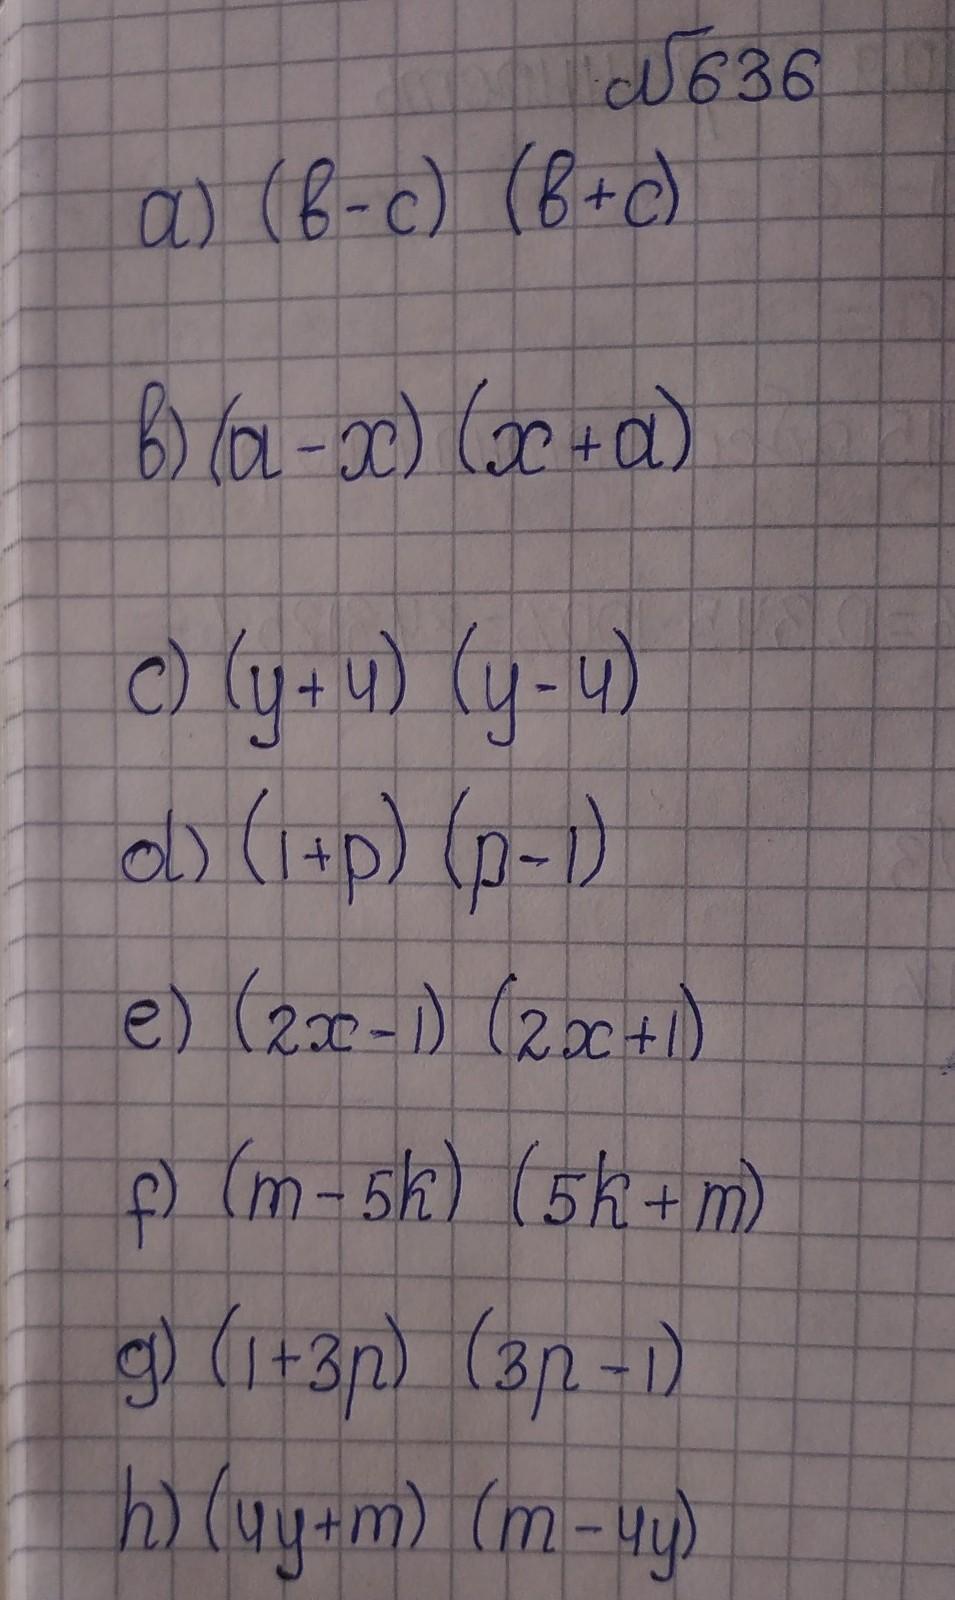 №636
a) (b-c) (b+c)
b) (a-x) (x+a)
c) (y+4) (y-4)
d) (1+p) (p-1)
e) (2x-1) (2x+1)
f) (m-5k) (5k+m)
g) (1+3p) (3p-1)
h) (4y+m) (m-4y)